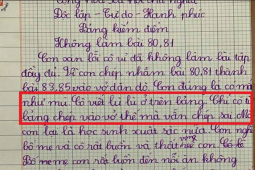 Độc lập - Tự do - Hạnh phúc
Bảng kiểm điểm
Không làm bài 80, 81
Con xin lỗi cô vì đã không làm bài tập
đầy đủ. Vì con chép nhầm bài 80,81 thành
bài 83,85 vào vở dặn dò. Con đúng là có mắt
như mù. Cô viết lù lù ở trên bảng. Chỉ có từ
bảng chép vào vở thế mà vẫn chép sai
con lại là học sinh xuất sắc nữa. Con nghĩ
bố mẹ và cô rất buồn và thất
Bố mẹ con rất buồn đến nỗi ăn không